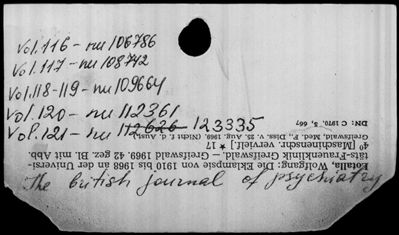 Vol. 116 - nu 106786
Vol. 117 - nu 108742
Vol. 118-119 - nu 109664
Vol. 120 - nu 112361
Vol. 121 - nu 112626 - 123335
The british journal of psychiatry
Fotalla, Wolfgang: Die Eklampsie von 1910 bis 1968 an der Universi-
täts-Frauenklinik Greifswald. — Greifswald 1969. 42 gez. Bl. mit Abb.
4° [Maschinenschr. vervielf.] ★ 17
Greifswald, Med. F., Diss. v. 25. Aug. 1969. (Nicht f. d. Aust.)
DN: C 1970, 5, 667